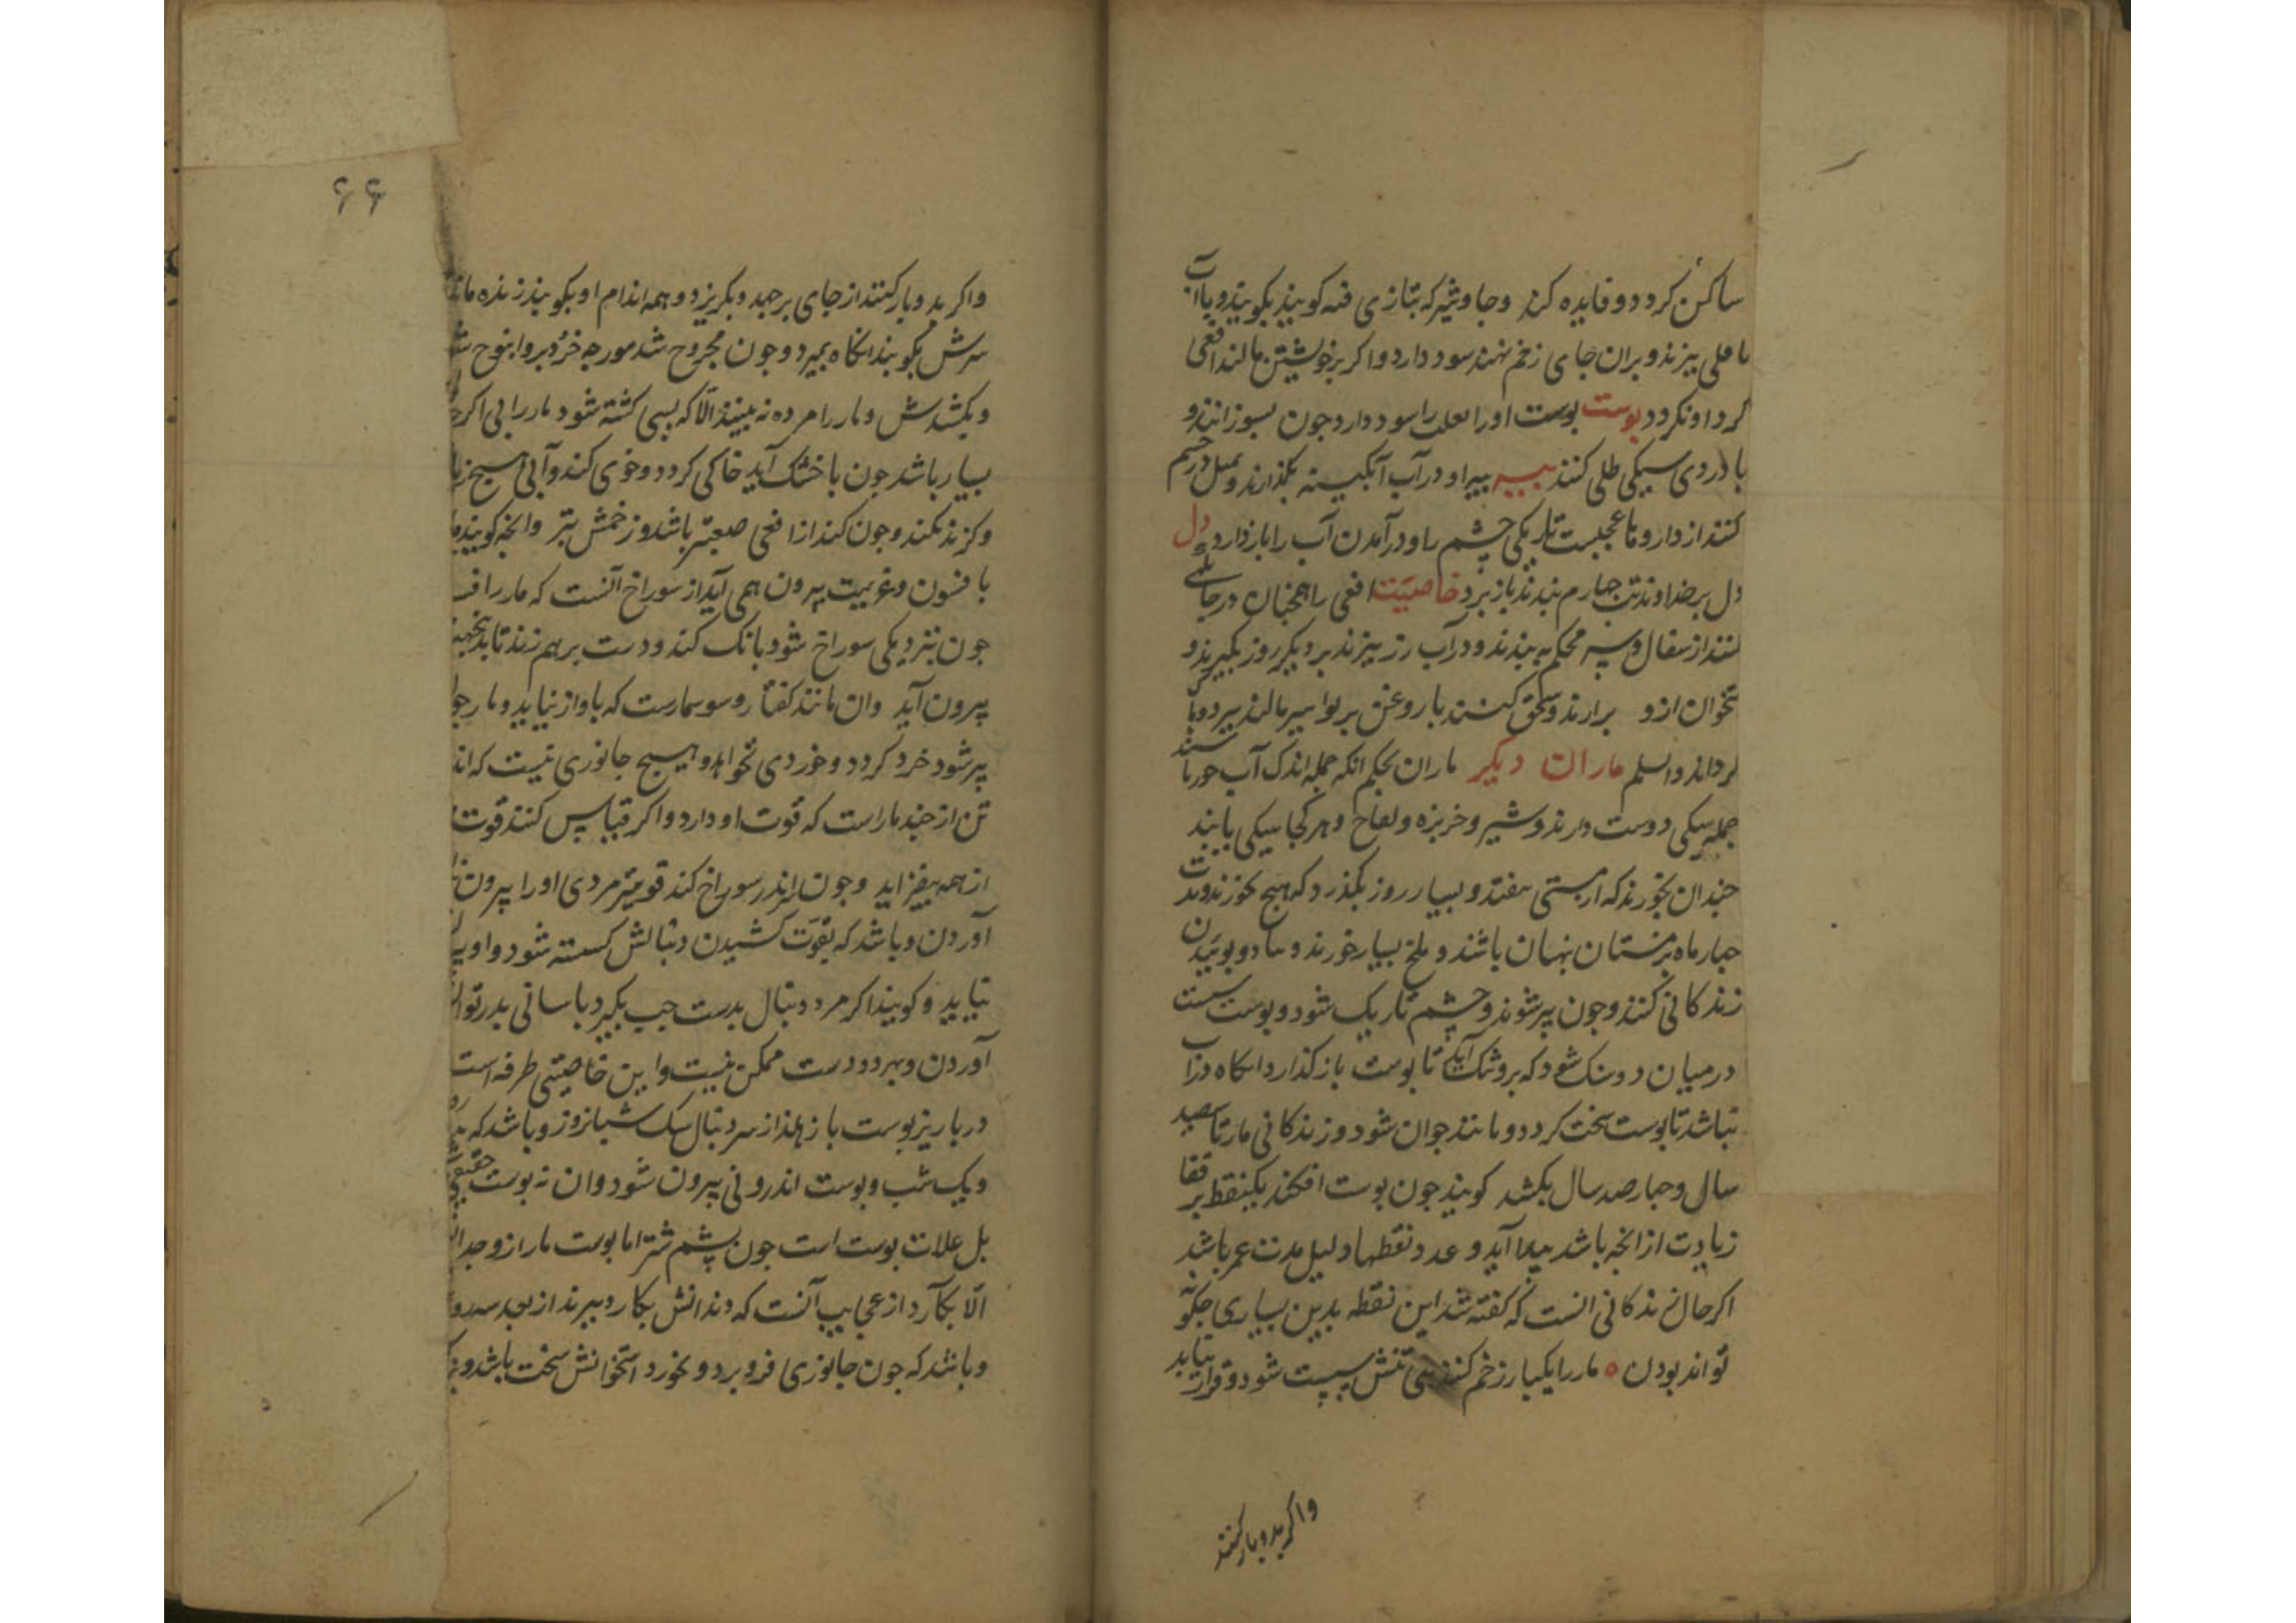 ساکن کردد و فایده کند وجاوشیر که بتازی قنه کویند بکویند و با آب
باقلی بپزند و بران جای زخم نهند سود دارد واکر برخویشتن مالند افعی
کرد او نکردد بوست بوست او را سود دارد جون بسوزانند و
با دردی سیکی طلی کنند بیه بیه او در آب آبکینه بکذارند وبمیل در جسم
کنند از داروها عجیبست تاریکی چشم را و در آمدن آب را باز دارد دل
دل بر خداوند تب جهارم بندند باز برد خاصیت افعی را همجنان در جای
کنند از سفال و سر محکم به بندند و در آب رز بپزند بر دیکر روز بکیرند و
تخوان ازو برارند وسحق کنند با روغن بر بواسیر مالند ببرد و با
کرداند والسلم ماران دیکر ماران بحکم انکه جمله اندک آب خورند
جمله سیکی دوست دارند وشیر و خربزه و لفاح وهر کجا سیکی یابند
جندان بخورند که از مستی بیفتند و بسیار روز بکذرد که هیج نخورند ومدت
جهار ماه بزمستان بنهان باشند و ملخ بسیار خورند و بباد و بوییدن
زندکانی کنند وجون پیر شوند و چشم تاریک شود و بوست سست
در میان دو سنک شود که بر وی تنک آید تا بوست باز کذارد انکاه در آب
نباشد تا بوست سخت کردد و مانند جوان شود و زندکانی مار تا سیصد
سال و جهار صد سال بکشد کویند جون بوست افکند یکنقطه بر قفا
زیادت از انجه باشد پیدا آید و عدد نقطها دلیل مدت عمر باشد
اکر حال زندکانی انست که کفته شد این نقطه بدین بسیاری جکونه
تواند بودن ٥ مار را یکبار زخم کنند بی تنش سست شود و قرار نیابد
واکر بدوبار کنند
۶۶
واکر بدوبار کنند از جای برجهد و بکریزد و همه اندام او بکویند زنده ماند
سرش بکویند انکاه بمیرد و جون مجروح شد مورجه خرد برو انبوه شود
و بکشدش و مار را مرده نه بینند الا که بسی کشته شود مار را بی اکرچه
بسیار باشد جون باخشک آید خاکی کردد و خوی کند و آبی هیج زیان
و کزند نکند وجون کند از افعی صعبتر باشد و زخمش بتر وانجه کویند مار
با فسون وعزیمت بیرون همی آید از سوراخ آنست که مار را
جون بنزدیکی سوراخ شود بانک کند و دست بر هم زند تا بدانجهت
بیرون آید وان مانند کفتار و سوسمارست که باواز نیاید و مار جون
پیر شود خرد کردد و خوردی نخواهد و هیج جانوری نیست که اند
تن از جند مار است که قوت او دارد و اکر قیاس کنند قوت
از همه بیفزاید وجون اندر سوراخ کند قویتر مردی او را بیرون
آوردن و باشد که بقوت کشیدن دنبالش کسسته شود واو بیرون
نیاید و کویند اکر مرد دنبال بدست جب بکیرد باسانی بدر تواند
آوردن وبهر دو دست ممکن نیست و این خاصیتی طرفه است
در باریز بوست باز هلد از سر دنبال یک شبانروز و باشد که بدو روز
و یک شب و بوست اندرونی بیرون شود وان نه بوست حقیقی
بل علات بوست است جون پشم شتر اما بوست مار ازو جدا
الا بکآرد از عجایب آنست که دندانش بکارد ببرند از بعد سه روز
و باشد که جون جانوری فرو برد و بخورد استخوانش سخت باشد و